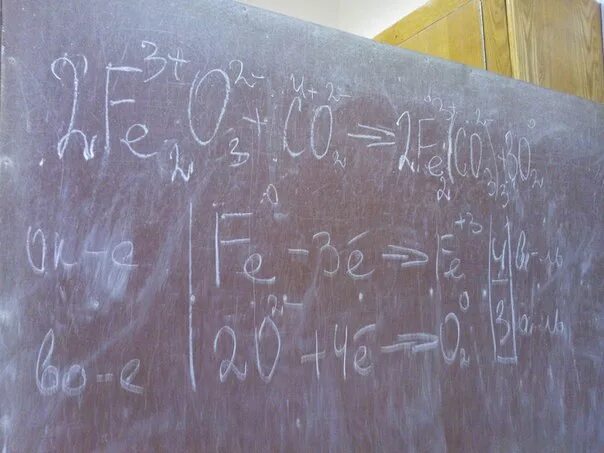 2Fe₂³⁺O₃²⁻ + C⁴⁺O₂²⁻ => 2Fe₂(CO₃)₃ + 3O₂⁰
ок-е | Fe⁰ - 3ē => Fe⁺³ | 4 | во-ль
во-е | 2O²⁻ + 4ē => O₂⁰ | 3 | ок-ль